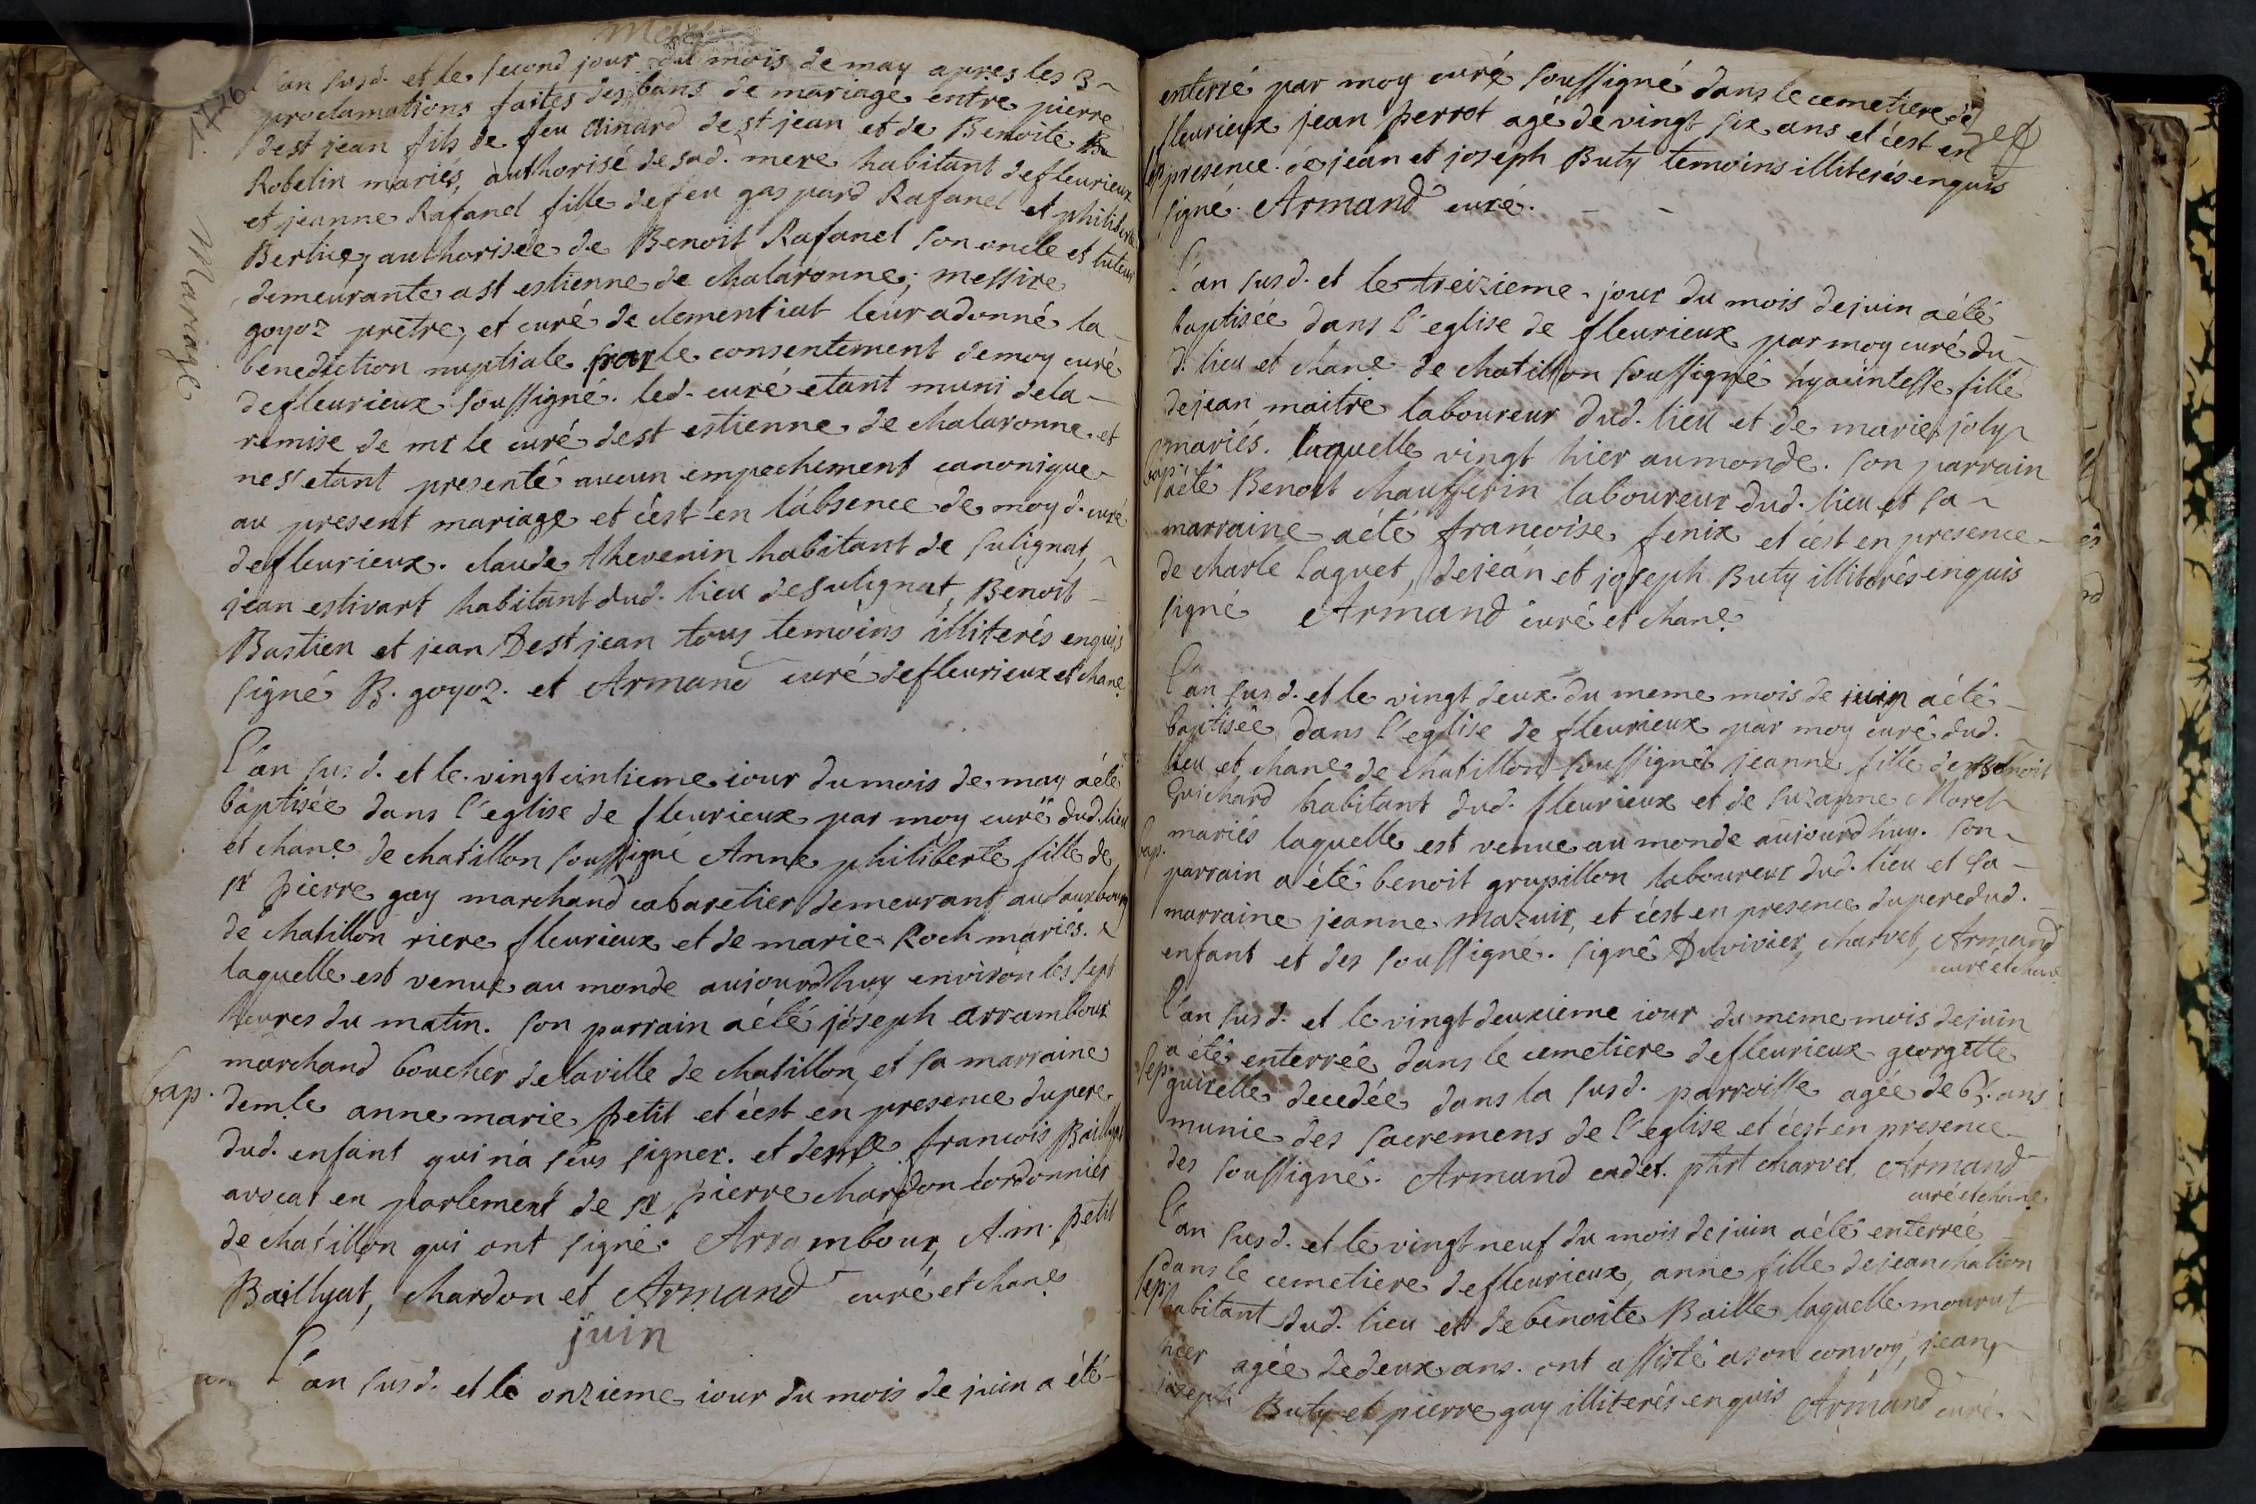 1726
Mariage
L'an susd. et le second jour du mois de may apres les 3
proclamations faites des bans de mariage entre pierre
dest jean fils de feu Ainard dest jean et de Benoite
Robelin mariés, authorisé de sad. mere habitant de fleurieux
et jeanne Rafanel fille de feu gaspard Rafanel et philiberte
authorisée de Benoit Rafanel son oncle et tuteur
demeurante a st estienne de chalaronne, messire
goyoz prêtre, et curé de clementiat leur a donné la
benediction nuptiale par le consentement de moy curé
de fleurieux soussigné. led. curé etant muni de la
remise de mr le curé de st estienne de chalaronne. et
nes'etant presenté aucun empechement canonique
au present mariage et c'est en l'absence de moy d. curé
de fleurieux. claude thevenin habitant de sulignat,
jean estivart habitant dud. lieu de sulignat, Benoit
Bastien et jean Dest jean tous temoins illiterés enquis
signé B. goyoz. et Armand curé de fleurieux et chane.
L'an susd. et le vingt cintieme iour du mois de may a été
baptisée dans l'eglise de fleurieux par moy curé dud. lieu
et chane. de chatillon soussigné Anne philiberte fille de
sr pierre gay marchand cabaretier demeurant au fauxbourg
de chatillon riere fleurieux et de marie Roch mariés.
laquelle est venue au monde aujourd'huy environ les sept
heures du matin. son parrain a été joseph arrambour
marchand boucher de la ville de chatillon, et sa marraine
bap. demle anne marie petit et c'est en presence du pere
dud. enfant qui n'a seus signer. et de françois Baillyat
avocat en parlement de sr pierre chardon cordonnier
de chatillon qui ont signé. Arrambour, A.m. petit
Baillyat, chardon et Armand curé et chane.
juin
L'an susd. et le onzieme iour du mois de juin a été
enterré par moy curé soussigné dans le cemetiere de
fleurieux jean perrot agé de vingt six ans et c'est en
sep. presence de jean et joseph Buty temoins illiterés enquis
signé. Armand curé.
L'an susd. et le treizieme jour du mois de juin a été
baptisée dans l'eglise de fleurieux par moy curé du
d. lieu et chane. de chatillon soussigné hyacintesse fille
de jean maitre laboureur dud. lieu et de marie joly
mariés. laquelle vingt hier au monde. son parrain
bap. a été Benoit chaufferin laboureur dud. lieu et sa
marraine a été francoise fenix et c'est en presence
de charle laguet, de jean et joseph Buty illiterés enquis
signé Armand curé et chane.
L'an susd. et le vingt deux du meme mois de juin a été
baptisée dans l'eglise de fleurieux par moy curé dud.
lieu et chane. de chatillon soussigné jeanne fille de Benoit
Guichard habitant dud. fleurieux et de suzanne Morel
bap. mariés laquelle est venue au monde aujourd'huy. son
parrain a été benoit grupillon laboureur dud. lieu et sa
marraine jeanne mazuir, et c'est en presence du pere dud.
enfant et des soussigné. signé Duvivier, charvet, Armand
curé et chane.
L'an susd. et le vingt deuxieme iour du meme mois de juin
a été enterrée dans le cemetiere de fleurieux georgette
sep. decedée dans la susd. parroisse agée de ans
munie des sacremens de l'eglise et c'est en presence
des soussigné. Armand cadet. charvet, Armand
curé et chane.
L'an susd. et le vingt neuf du mois de juin a été enterrée
dans le cemetiere de fleurieux, anne fille de jean chation
sep. habitant dud. lieu et de benoite Baille laquelle mourut
hier agée de deux ans. ont assisté a son convoy, jean,
joseph Buty et pierre gay illiterés enquis Armand curé.